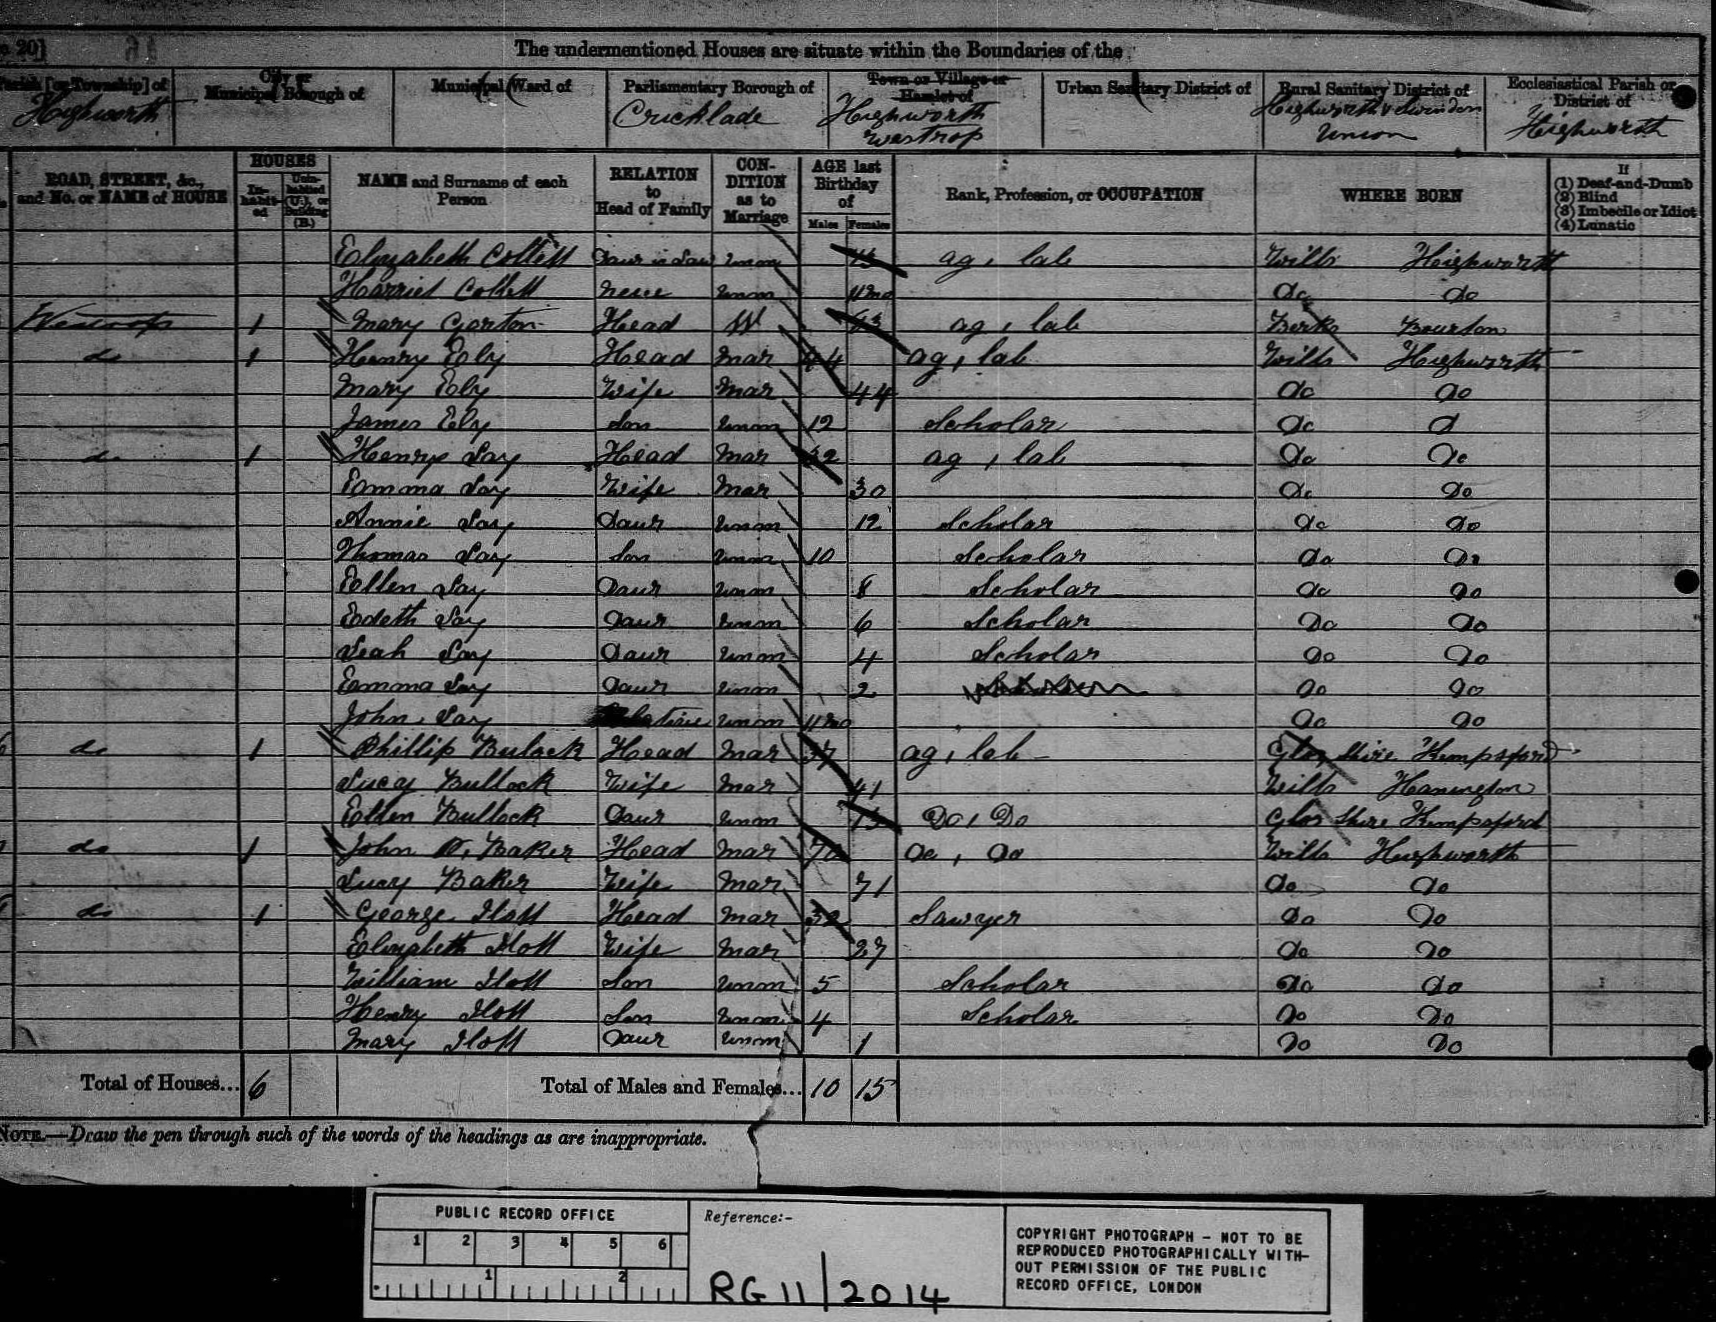 20]
The undermentioned Houses are situate within the Boundaries of the
Parish [or Township] of City or Municipal Borough of Municipal Ward of Parliamentary Borough of Town or Village or Hamlet of Urban Sanitary District of Rural Sanitary District of Ecclesiastical Parish or District of
Highworth Cricklade Highworth Westrop Highworth & Swindon Union Highworth
ROAD, STREET, &c., and No. or NAME of HOUSE HOUSES In-habit-ed Unin-habited (U.), or Building (B.) NAME and Surname of each Person RELATION to Head of Family CON-DITION as to Marriage AGE last Birthday of Males Females Rank, Profession, or OCCUPATION WHERE BORN If (1) Deaf-and-Dumb (2) Blind (3) Imbecile or Idiot (4) Lunatic
Elizabeth Collett Daur in Law Unm 15 ag, lab Wilts Highworth
Harriet Collett neice Unm 11mo do do
Westrop 1 Mary Gorton Head W ag, lab Berks Bourton
do 1 Henry Ely Head Mar 44 ag, lab Wilts Highworth
Mary Ely Wife Mar 44 do do
James Ely Son Unm 12 Scholar do d
do 1 Henry Say Head Mar 32 ag, lab do do
Emma Say Wife Mar 30 do do
Annie Say Daur Unm 12 Scholar do do
Thomas Say Son Unm 10 Scholar do do
Ellen Say Daur Unm 8 Scholar do do
Edeth Say Daur Unm 6 Scholar Do Do
Leah Say Daur Unm 4 Scholar Do Do
Emma Say Daur Unm 2 do do
John Say Relative Unm 11mo do do
do 1 Phillip Bulock Head Mar 37 ag, lab Glos Shire Kempsford
Lucy Bullock Wife Mar 41 Wilts Hanington
Ellen Bullock Daur Unm 15 Do, Do Glos Shire Kempsford
do 1 John Baker Head Mar 70 do, do Wilts Highworth
Lucy Baker Wife Mar 71 do do
do 1 George Iott Head Mar 32 Sawyer do do
Elizabeth Iott Wife Mar 27 do do
William Iott Son Unm 5 Scholar do do
Henry Iott Son Unm 4 Scholar do do
Mary Iott Daur Unm 1 Do Do
Total of Houses... 6 Total of Males and Females... 10 15
NOTE.—Draw the pen through such of the words of the headings as are inappropriate.
PUBLIC RECORD OFFICE
1 2 3 4 5 6
1 2
Reference:-
RG 11/2014
COPYRIGHT PHOTOGRAPH - NOT TO BE
REPRODUCED PHOTOGRAPHICALLY WITH-
OUT PERMISSION OF THE PUBLIC
RECORD OFFICE, LONDON